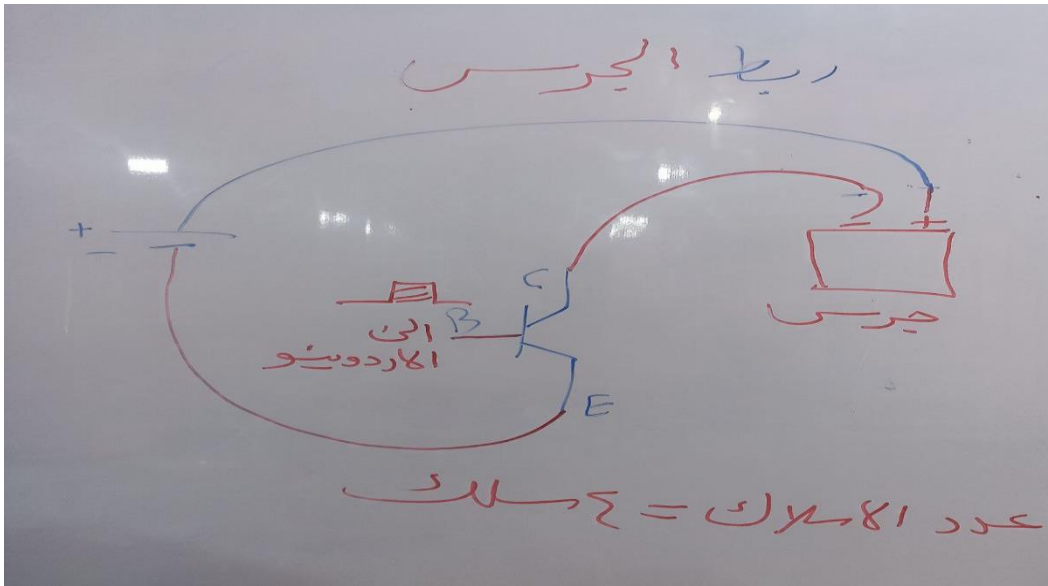 ربط الجرس
+
−
− +
C
B
الى
الاردوينو
جرس
E
عدد الاسلاك = ٤ سلك